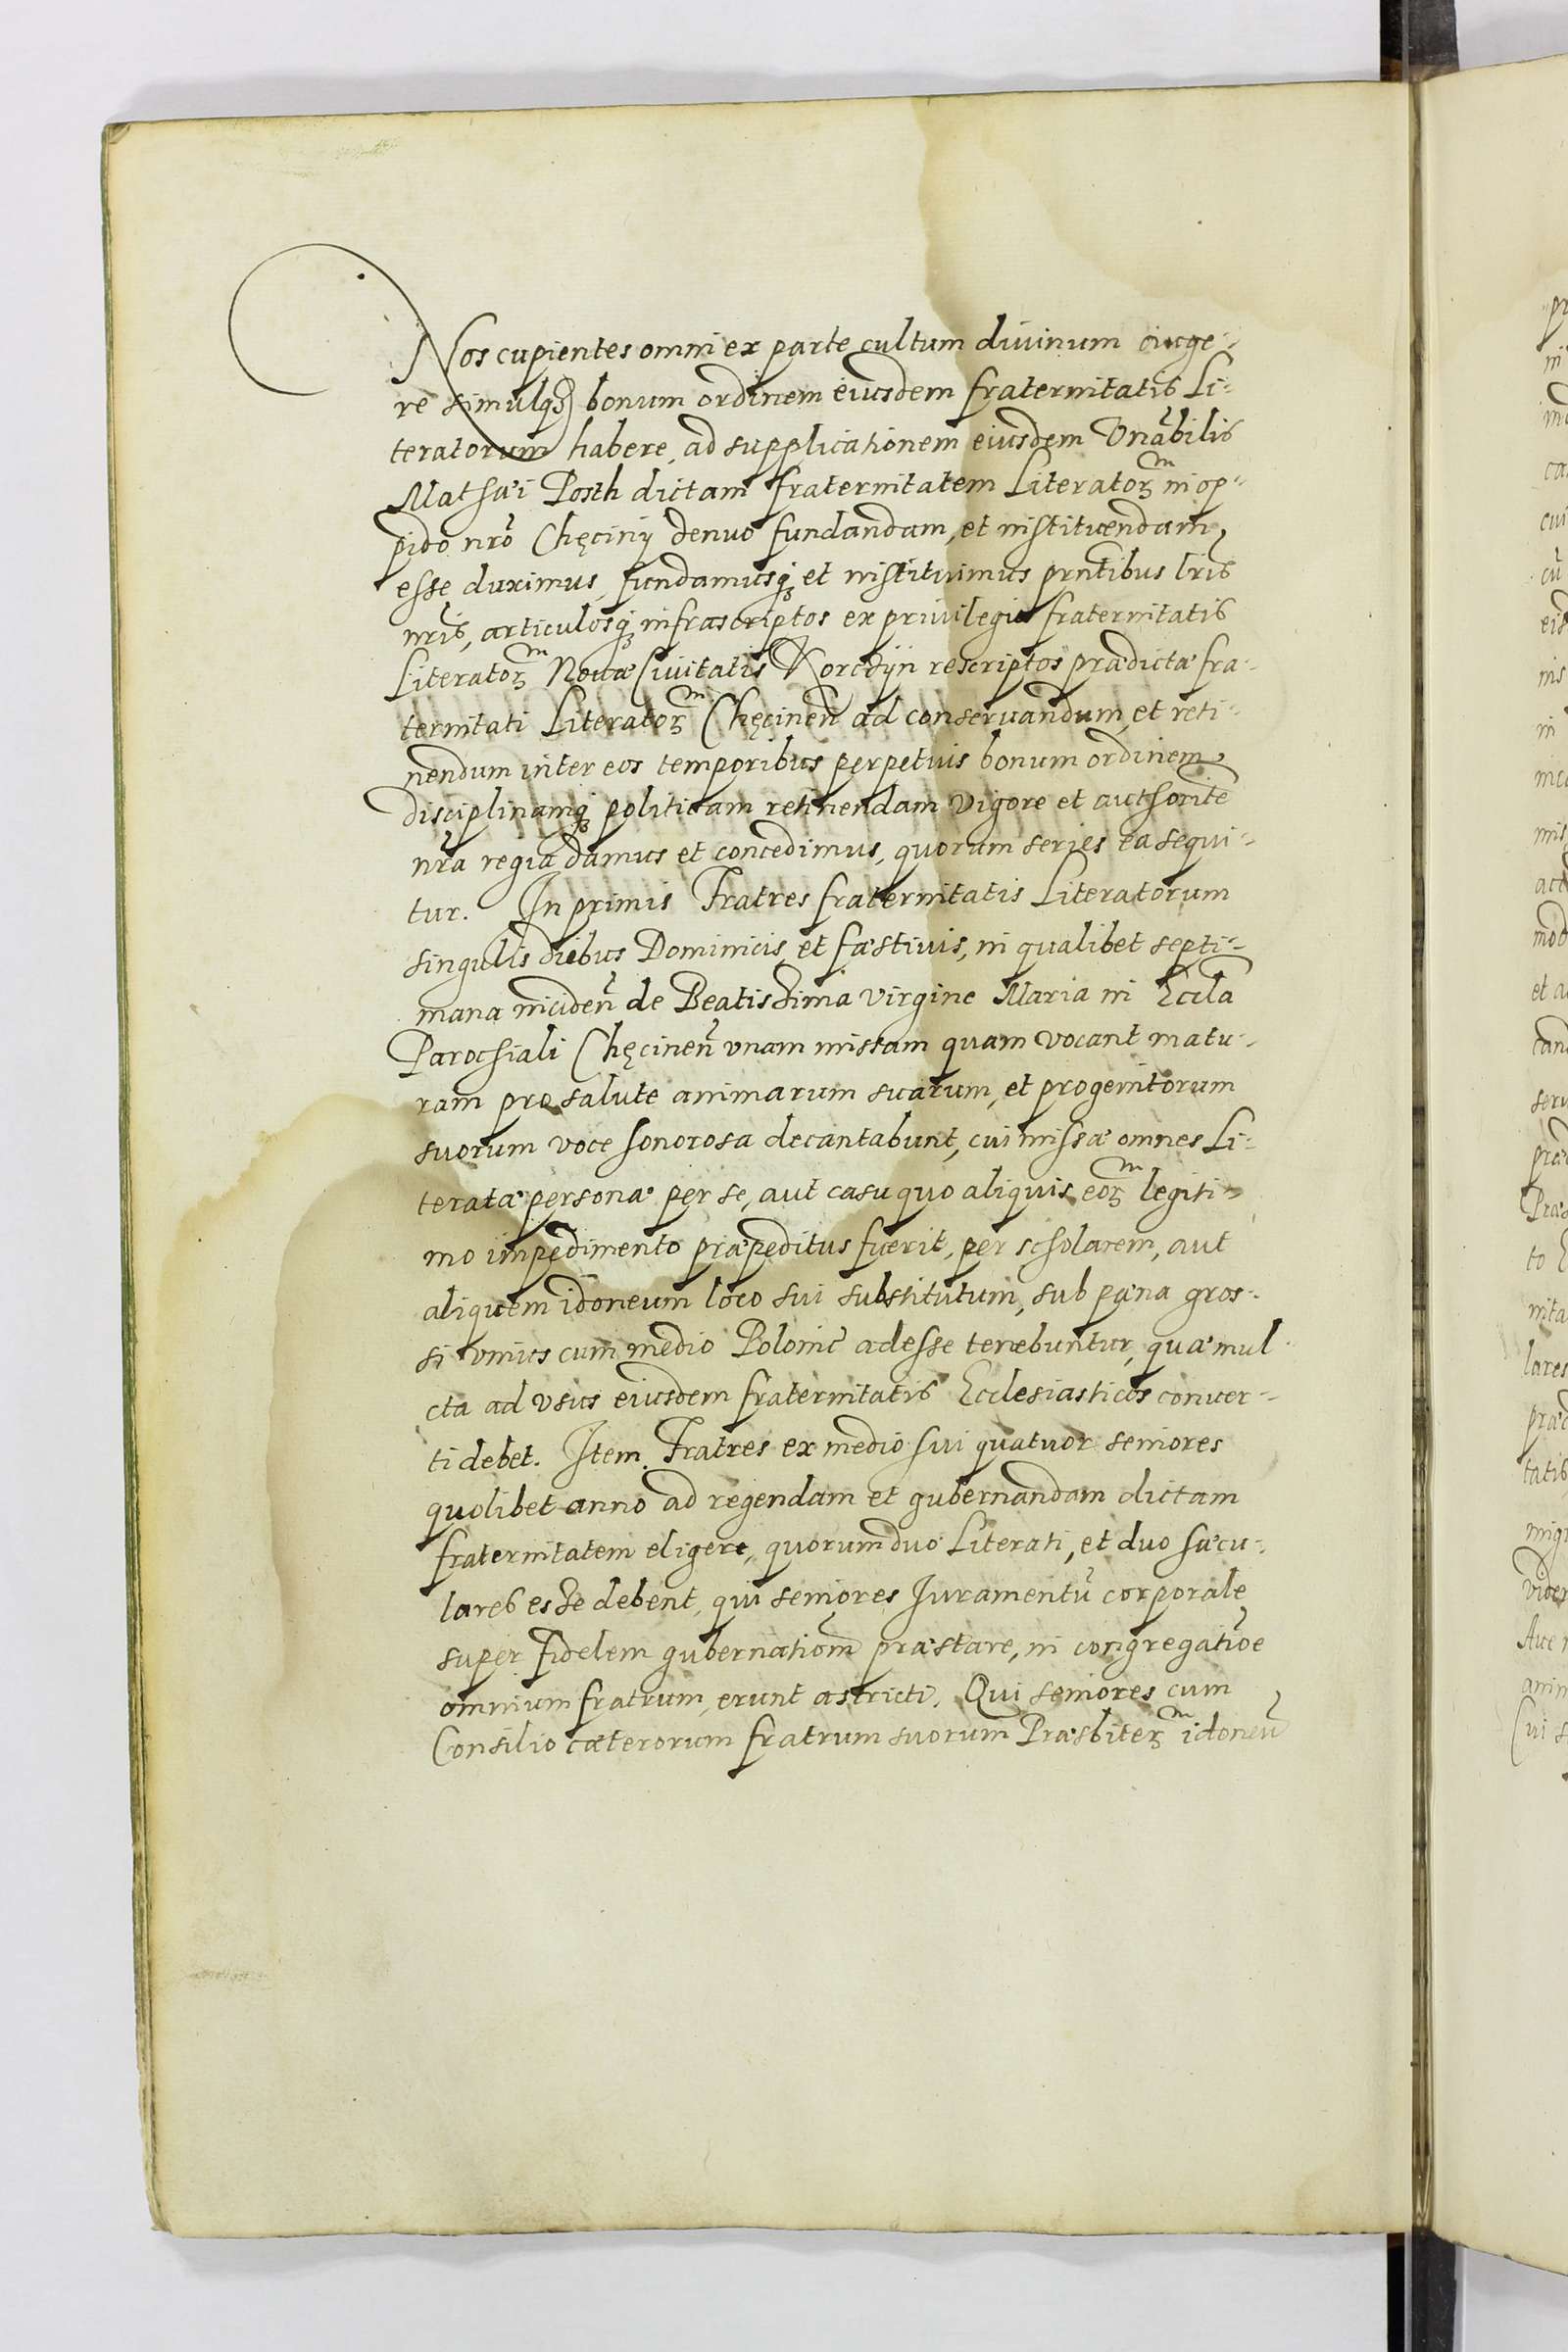 Nos cupientes omni ex parte cultum diuinum auge-
re simulq3 bonum ordinem eiusdem fraternitatis Li-
teratorum habere, ad supplicationem eiusdem Vnãbilis
Mathæi Posth dictam fraternitatem Literatoꝝᵐ in op-
pido nrõ Chęciny denuo fundandam, et instituendam,
esse duximus, fundamusq; et instituimus pñtibus lris
nris, articulosq; infrascriptos ex priuilegio fraternitatis
Literatoꝝᵐ Nouæ Ciuitatis Korcżyn rescriptos prædictæ fra-
ternitati Literatoꝝᵐ Chęcineñ ad conseruandum, et reti-
nendum inter eos temporibus perpetuis bonum ordinem,
disciplinamq; politicam retinendam vigore et authorite
nrã regia damus et concedimus, quorum series ea sequi-
tur. In primis Fratres fraternitatis Literatorum
singulis diebus Dominicis, et fæstiuis, in qualibet septi-
mana incideñ de Beatissima virgine Maria in Eccla
Parochiali Chęcineñ vnam missam quam vocant matu-
ram pro salute animarum suarum, et progenitorum
suorum voce sonorosa decantabunt, cui missæ omnes Li-
teratæ personæ per se, aut casu quo aliquis eoꝝᵐ legiti-
mo impedimento præpeditus fuerit, per scholarem, aut
aliquem idoneum loco sui substitutum, sub pæna gros-
si vnius cum medio Polonic̃ adesse tenebuntur, quæ mul-
cta ad vsus eiusdem fraternitatis Ecclesiasticos conuer-
ti debet. Item. Fratres ex medio sui quatuor seniores
quolibet anno ad regendam et gubernandam dictam
fraternitatem eligere, quorum duo Literati, et duo sæcu-
lares esse debent, qui seniores Iuramentũ corporale
super fidelem gubernationẽ præstare, in congregatiõe
omnium fratrum, erunt astricti. Qui seniores cum
Consilio cæterorum fratrum suorum Præsbiteꝝᵐ idoneũ